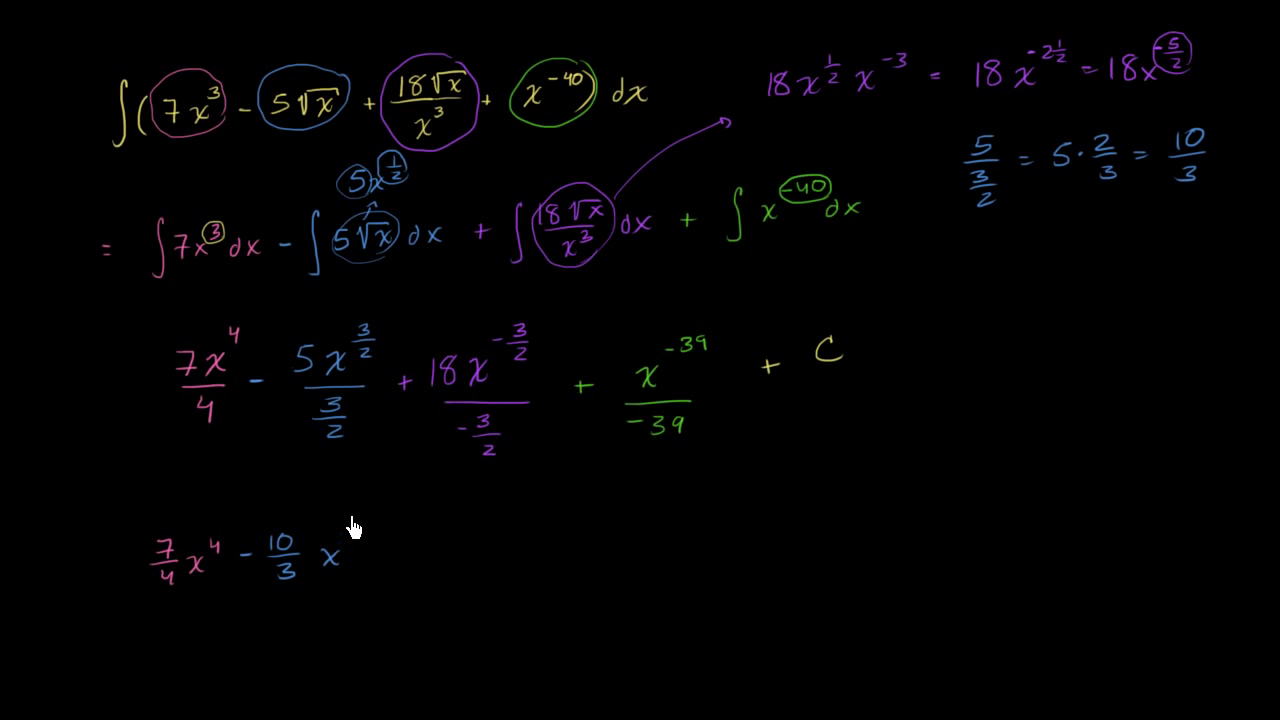 ∫(7x³ - 5√x + 18√x/x³ + x⁻⁴⁰) dx
18x^(1/2) x⁻³ = 18x^(-2 1/2) = 18x^(-5/2)
5/(3/2) = 5·2/3 = 10/3
5x^(1/2)
= ∫7x³dx - ∫5√x dx + ∫18√x/x³ dx + ∫x⁻⁴⁰dx
7x⁴/4 - 5x^(3/2)/(3/2) + 18x^(-3/2)/(-3/2) + x⁻³⁹/-39 + C
7/4 x⁴ - 10/3 x